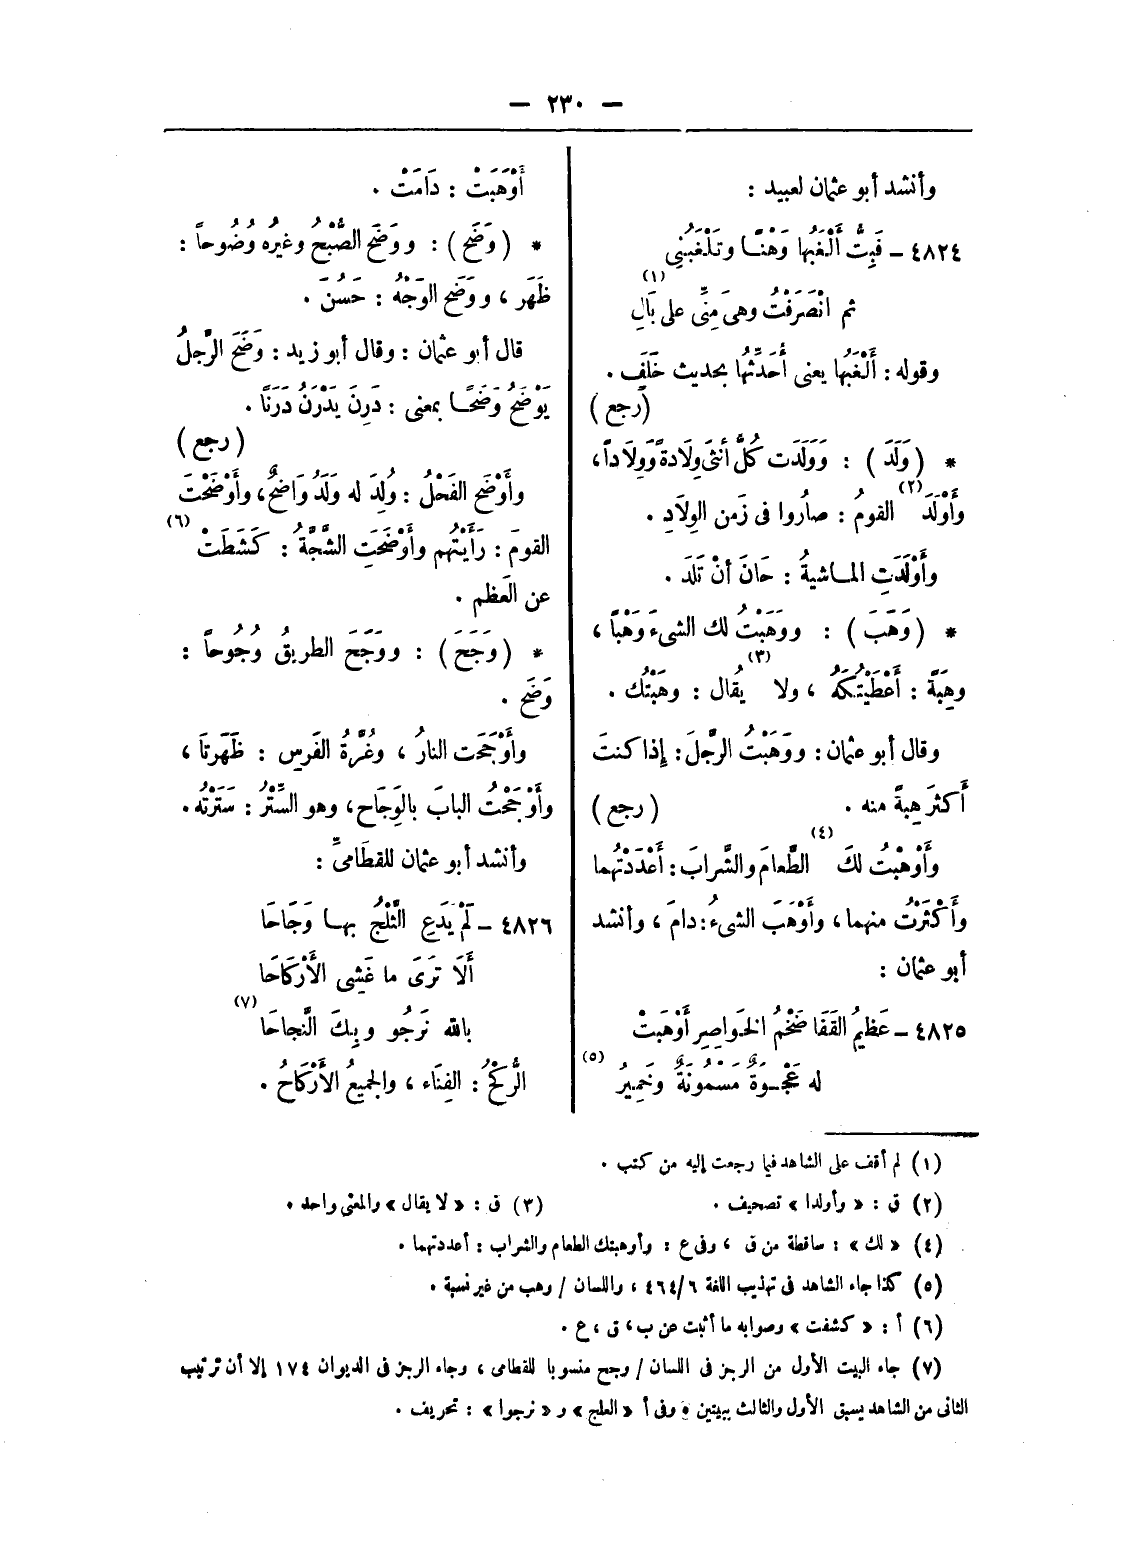 — ٢٣٠ —
وأنشد أبو عثمان لعبيد :
٤٨٢٤ – فَبِتُّ أَلْغَبُها وَهْنًا وتَلْغَبُنِى
ثم انْصَرَفْتُ وهىَ مِنِّى على بَالِ (١)
وقوله : أَلْغَبُها يعنى أُحَدِّثُها بحديث خَلَفٍ .
(رجع)
* (وَلَدَ) : وَوَلَدَت كُلُّ أنثى وِلادةً وَوِلَاداً ،
وَأَوْلَدَ (٢) القومُ : صارُوا فى زَمن الوِلَادِ .
وأَوْلَدَتِ المـاشيةُ : حَانَ أنْ تَلدَ .
* (وَهَبَ) : ووَهَبْتُ لك الشىءَ وَهْبًا ،
وهِبَةً : أَعْطَيْتُكَهُ ، ولا (٣) يُقال : وهَبْتُك .
وقال أبو عثمان : ووَهَبْتُ الرَّجلَ : إذا كنتَ
أَكثرَ هِبةً منه . (رجع)
وَأَوْهَبْتُ لكَ (٤) الطَّعامَ والشَّرابَ : أَعْدَدْتُهما
وأَكْثَرْتُ منهما ، وأَوْهَبَ الشىءُ : دامَ ، وأنشد
أبو عثمان :
٤٨٢٥ – عَظيمُ القَفَا ضَخْمُ الخَواصِرِ أَوْهَبَتْ
له عَجْـوَةٌ مَسْمُونَةٌ وخَمِيرُ (٥)
أَوْهَبَتْ : دَامَتْ .
* (وَضَح) : ووَضَحَ الصُّبْحُ وغيرُه وُضُوحاً :
ظَهَر ، ووَضَح الوَجْهُ : حَسُنَ .
قال أبو عثمان : وقال أبو زيد : وَضَحَ الرَّجلُ
يَوْضَحُ وَضَحًـا بمعنى : دَرِنَ يَدْرَنُ دَرَنًا .
(رجع)
وأَوْضَح الفَحْلُ : وُلِدَ له وَلَدٌ وَاضحٌ ، وأَوْضَحْتَ
القومَ : رَأَيْتُهم وأَوْضَحَتِ الشَّجَّةُ : كَشَطَتْ (٦)
عن العَظم .
* (وَجَحَ) : ووَجَحَ الطريقُ وُجُوحاً :
وَضَح .
وأَوْجَحَت النارُ ، وغُرَّةُ الفَرَسِ : ظَهَرتَا ،
وأَوْجَحْتُ البابَ بالوَجَاح ، وهو السِّتْرُ : سَتَرْتُه .
وأنشد أبو عثمان للقطَامىِّ :
٤٨٢٦ – لَمْ يَدَعِ الثَّلْجُ بهـا وَجَاحَا
أَلَا تَرَىَ ما غَشِى الأَرْكَاحَا
بالله نَرجُو وبِكَ النَّجاحَا (٧)
الرُّكْحُ : الفِنَاء ، والجميعُ الأَرْكَاحُ .
(١) لم أقف على الشاهد فيما رجعت إليه من كتب .
(٢) ق : « وأولدا » تصحيف . (٣) ق : « لا يقال » والمعنى واحد .
(٤) « لك » : ساقطة من ق ، وفى ع : وأوهبتك الطعام والشراب : أعددتهما .
(٥) كذا جاء الشاهد فى تهذيب اللغة ٦/٤٦٤ ، واللسان / وهب من غير نسبة .
(٦) أ : « كشفت » وصوابه ما أثبت عن ب ، ق ، ع .
(٧) جاء البيت الأول من الرجز فى اللسان / وجح منسوبا للقطامى ، وجاء الرجز فى الديوان ١٧٤ إلا أن ترتيب
الثانى من الشاهد يسبق الأول والثالث ببيتين . وفى أ « العلج » و « نرجوا » : تحريف .